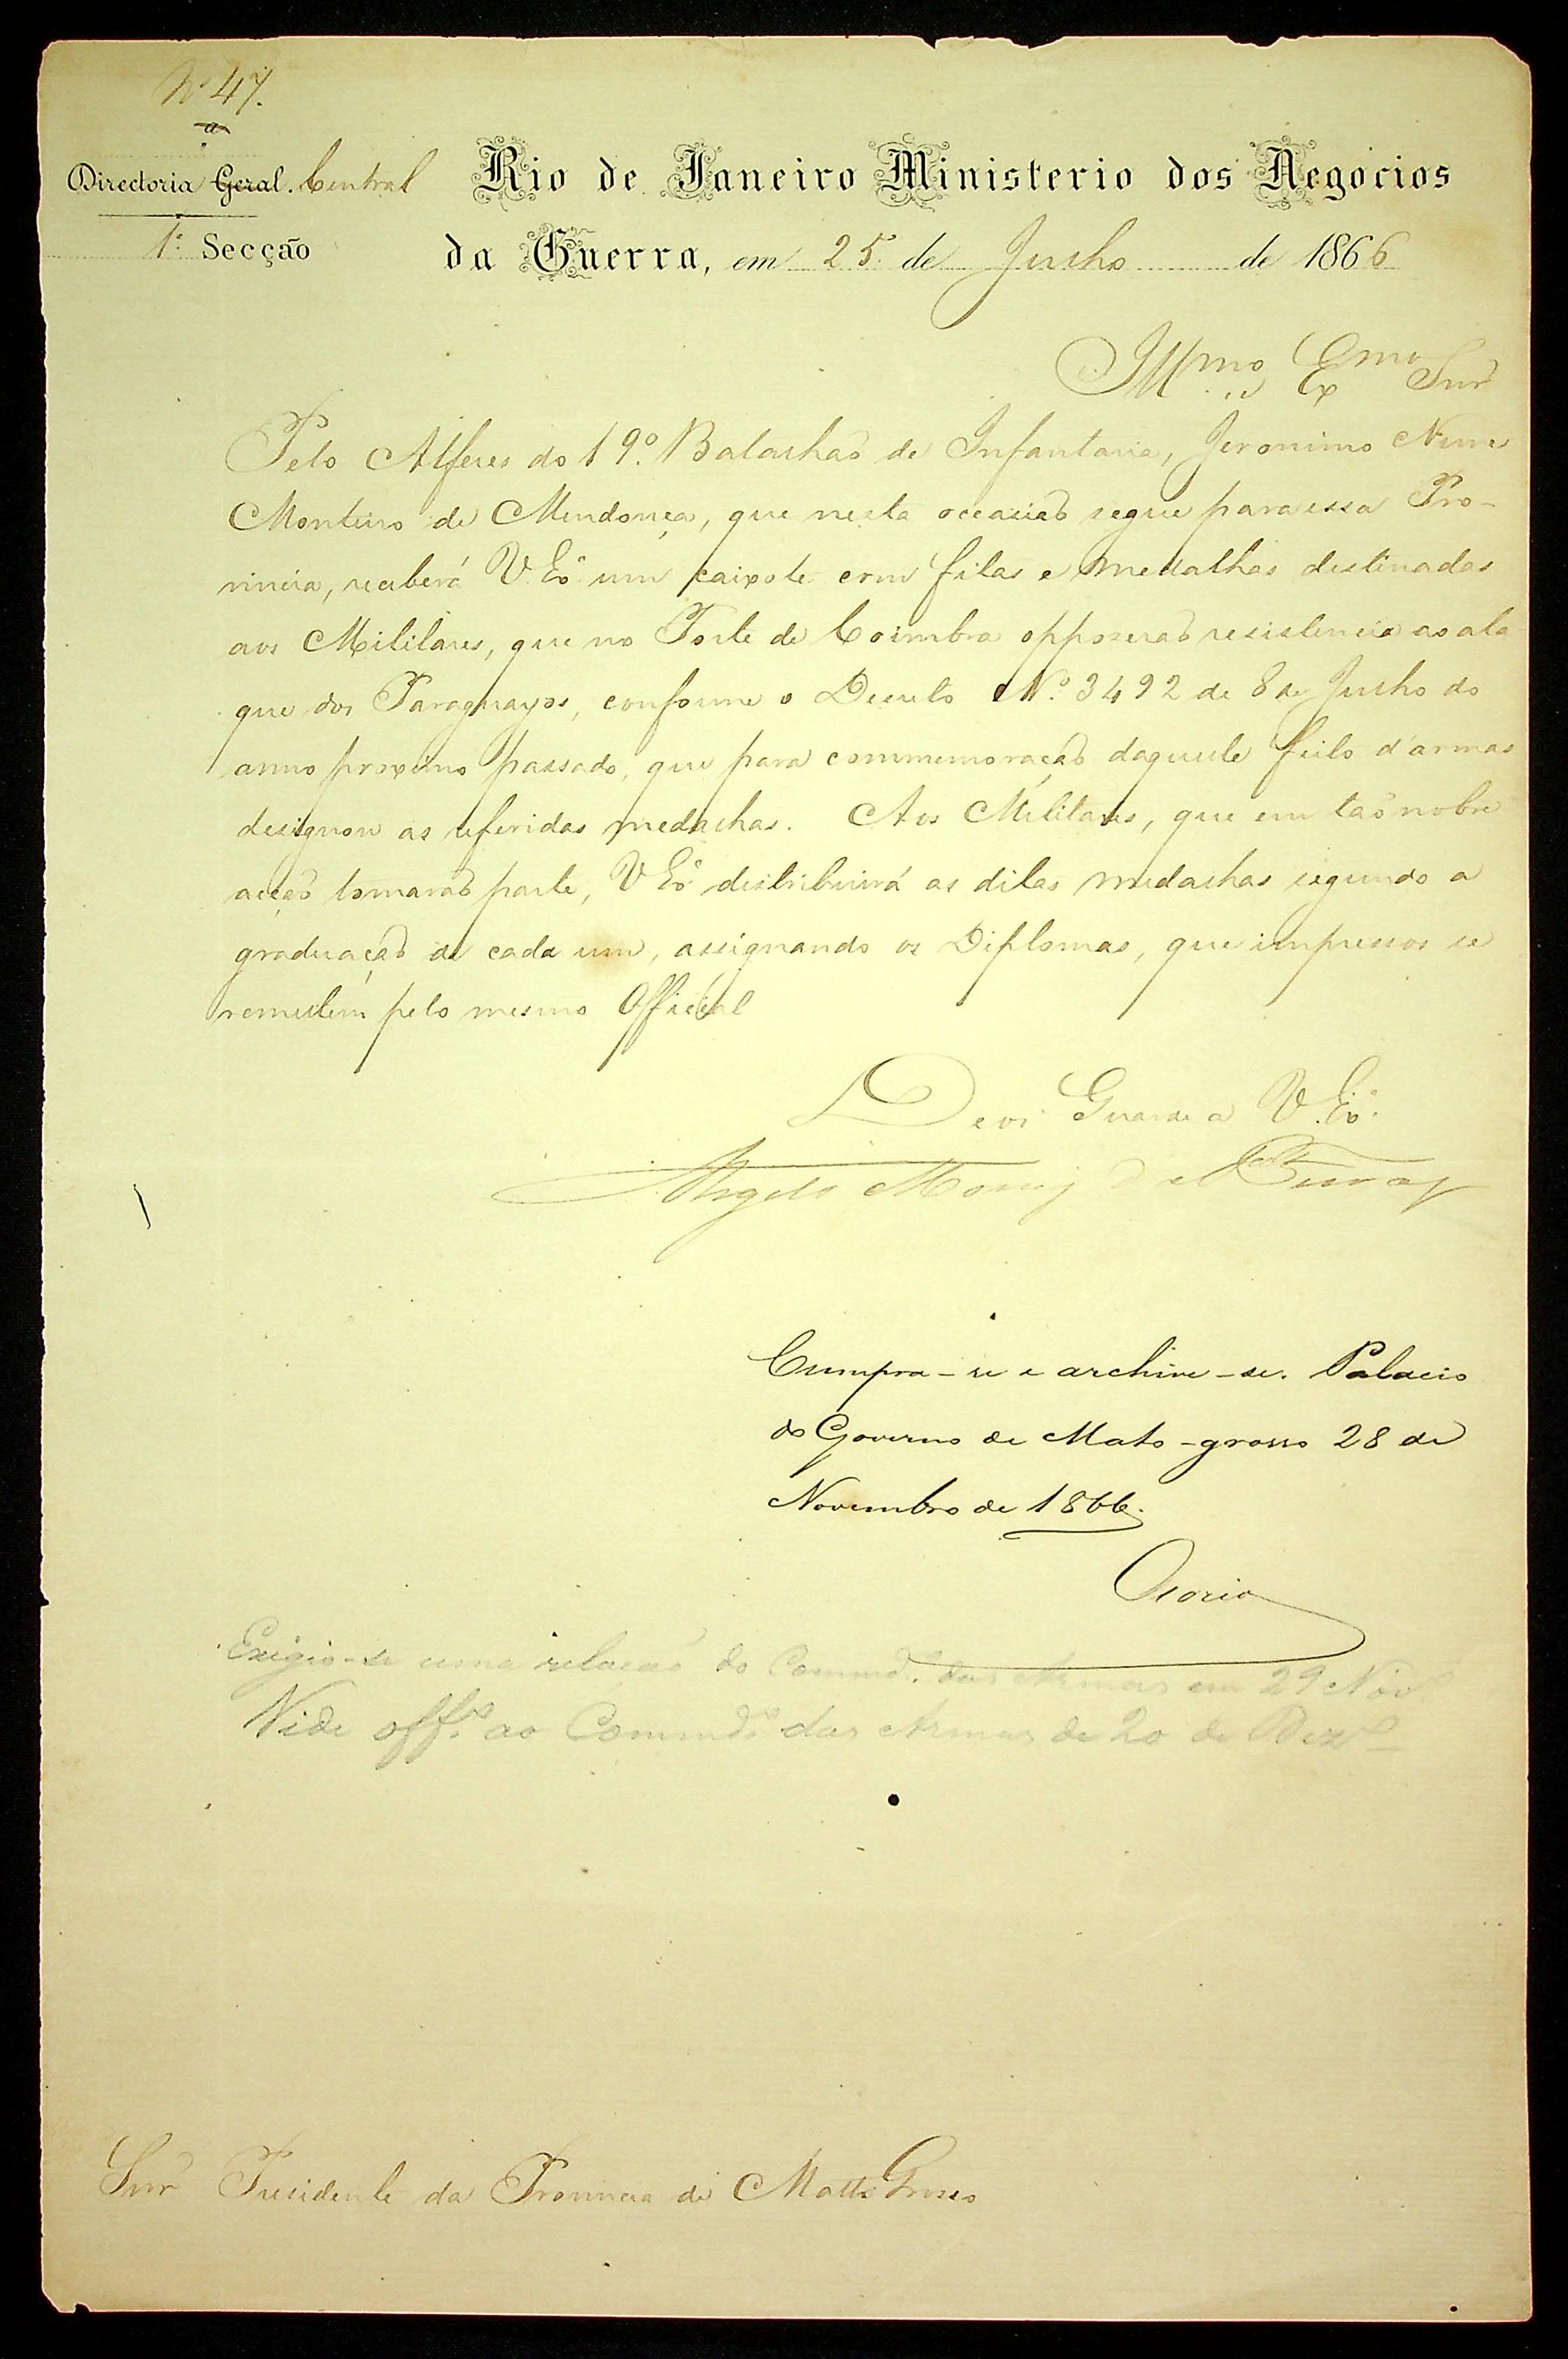 Nº 47.
Directoria Geral. Central
1ª Secção
Rio de Janeiro Ministerio dos Negocios
da Guerra, em 25 de Junho de 1866
Illmo e Exmo Snr
Pelo Alferes do 19º. Batalhaõ de Infantaria, Jeronimo Nunes
Monteiro de Mendonça, que nesta occasiaõ segue para essa Pro-
vincia, receberá V. Exª um caixote com fitas e medalhas destinadas
aos Militares, que no Forte de Coimbra oppozeraõ resistencia ao ata-
que dos Paraguayos, conforme o Decreto Nº. 3492 de 8 de Julho do
anno proximo passado, que para commemoraçaõ daquele feito d'armas
designou as referidas medalhas. Aos Militares, que em taõ nobre
acçaõ tomaraõ parte, V Exª distribuirá as ditas medalhas segundo a
graduaçaõ de cada um, assignando os Diplomas, que impressos se
remettem pelo mesmo Official
Deos Guarde a V. Exª.
Angelo Moniz da Sª Ferraz
Cumpra-se e archive-se. Palacio
do Governo de Mato-grosso 28 de
Novembro de 1866.
Osorio
Exigio-se uma relaçaõ do Commde. das Armas em 29 Novº
Vide offº. ao Commde. das Armas de 20 de Dezº
Snr Presidente da Provincia de Matto Grosso